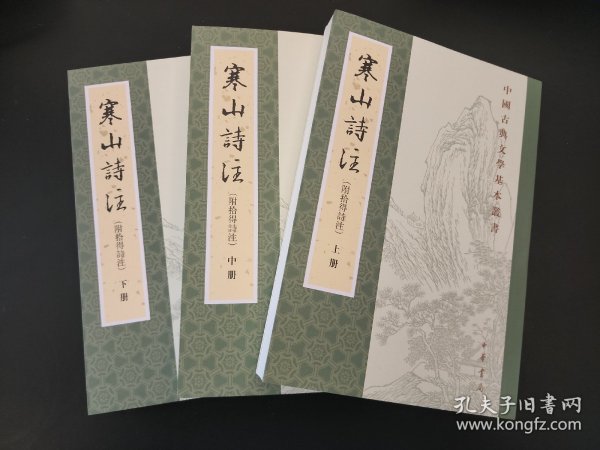 寒山詩注
（附拾得詩注）
下册
寒山詩注
（附拾得詩注）
中册
寒山詩注
（附拾得詩注）
上册
中國古典文學基本叢書
中華書局
孔夫子旧书网
www.kongfz.com